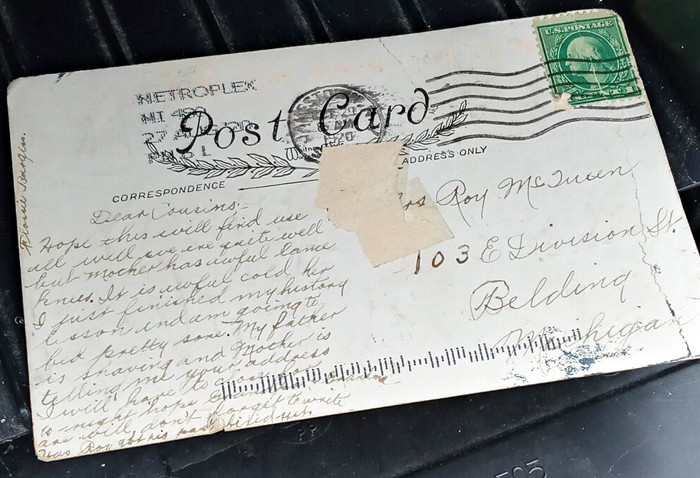 U.S. POSTAGE
METROPLEX
MI 480
27
Post Card
1920
CORRESPONDENCE
ADDRESS ONLY
Dear Cousins:-
Hope this will find use
all well we are quite well
but Mother has awful lame
knees. It is awful cold her
I just finished my history
lesson and am going to
bed pretty soon. My father
is shaving and Mother is
telling me your address
I will have to close for
to night hope Grandma
are well don't forget to write
has Roy got his
Roy McQueen
103 E Division St.
Belding
Michigan